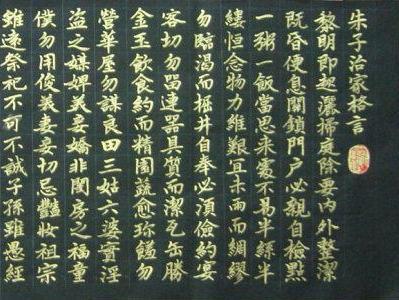 朱子治家格言
黎明即起灑掃庭除要內外整潔
既昏便息關鎖門戶必親自檢點
一粥一飯當思來處不易半絲半
縷恒念物力維艱宜未雨而綢繆
勿臨渴而掘井自奉必須儉約宴
客切勿留連器具質而潔瓦缶勝
金玉飲食約而精園蔬愈珍饈勿
營華屋勿謀良田三姑六婆實淫
盜之媒婢美妾嬌非閨房之福童
僕勿用俊美妻妾切忌豔妝祖宗
雖遠祭祀不可不誠子孫雖愚經